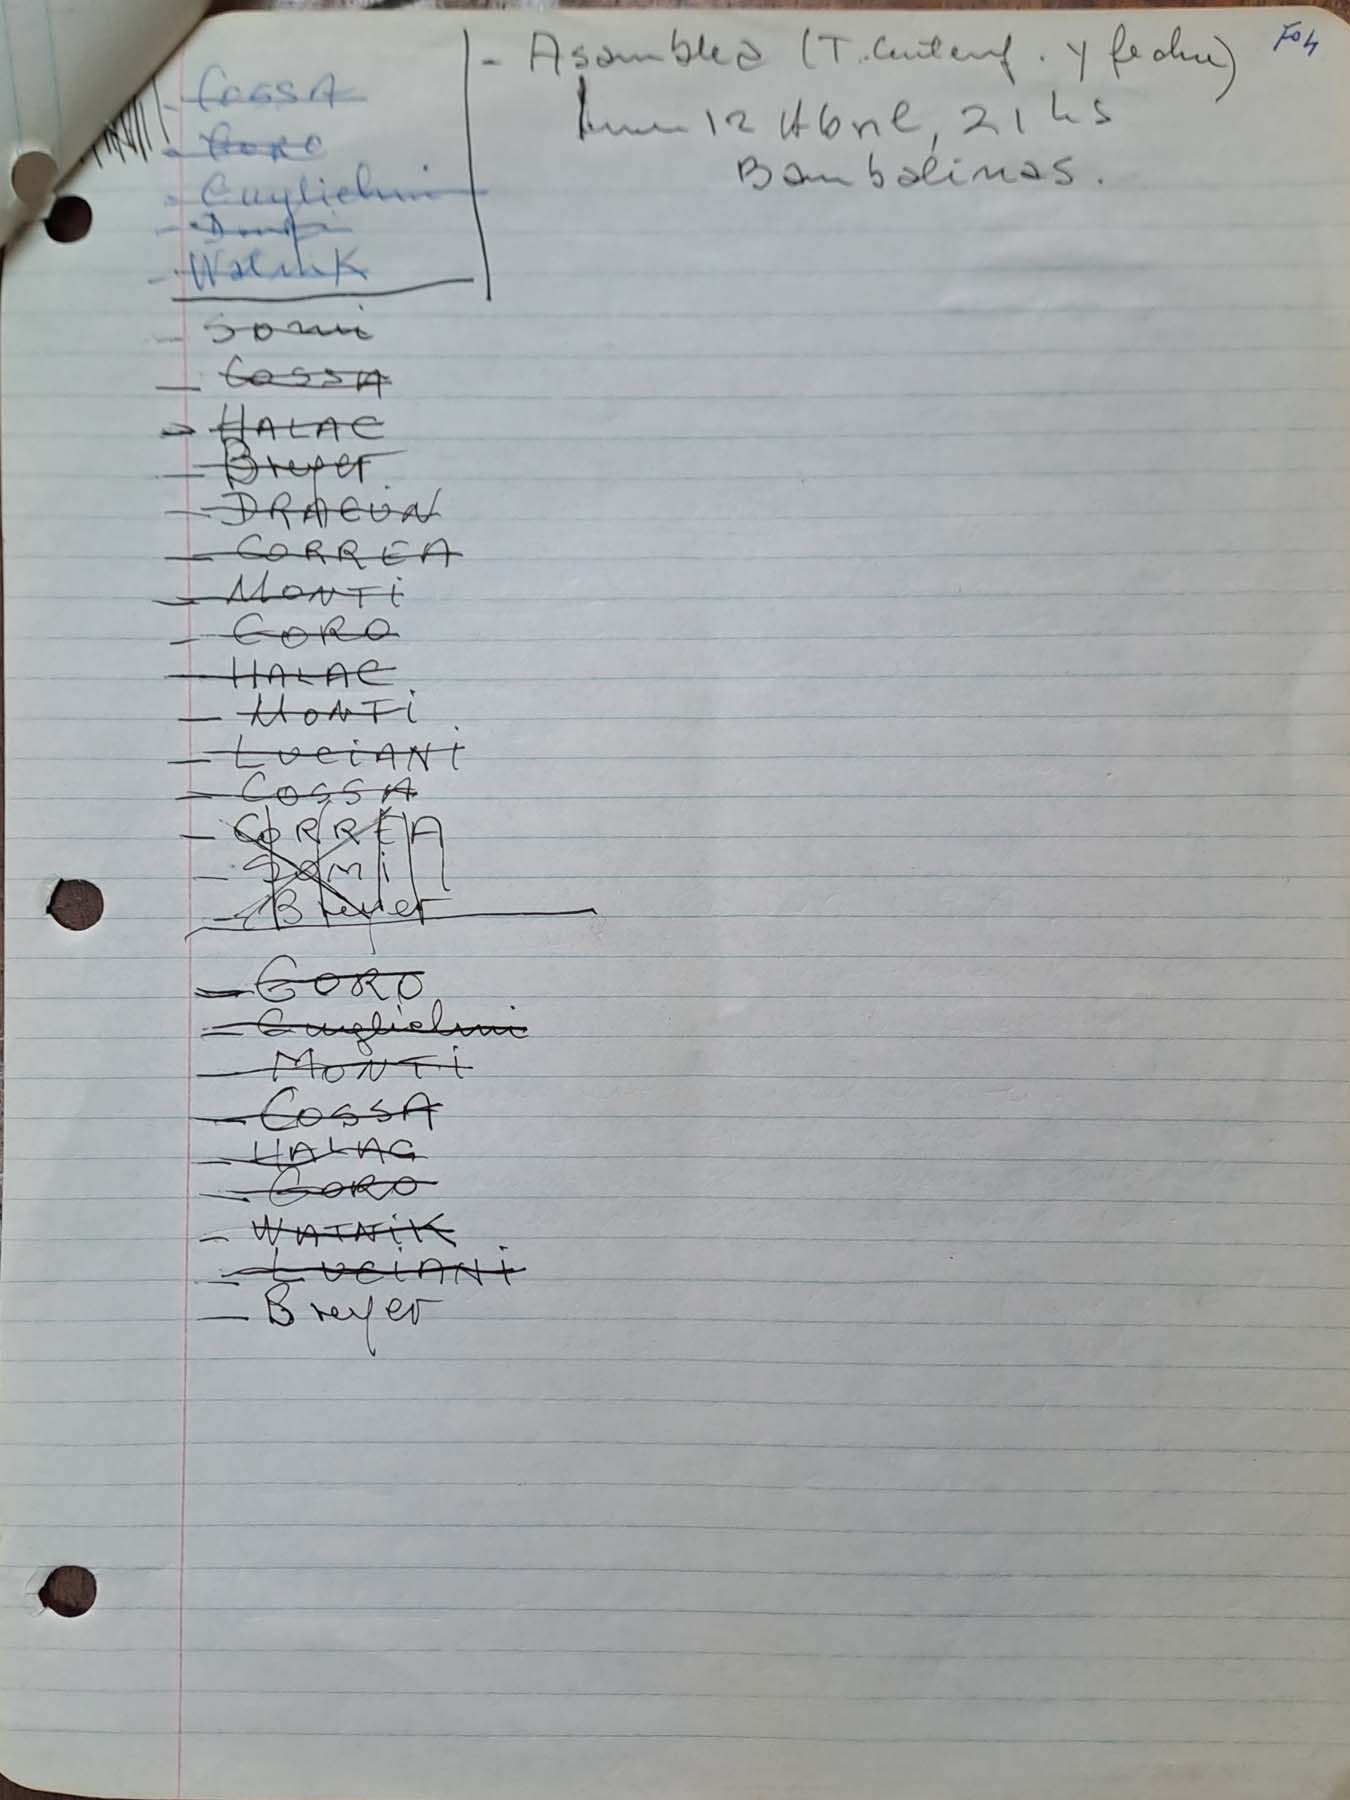 Fo4
- Asamblea (T. Y fecha)
12 Abril, 21 hs
Bambalinas.
- COSSA
- GORO
- Guglielmi
- Dragún
- WatniK
- SOMi
- COSSA
- HALAC
- Breyer
- DRAGÚN
- CORREA
- MONTi
- GORO
- HALAC
- MONTi
- LUCiANi
- COSSA
- CORREA
- SOMi
- Breyer
- GORO
- Guglielmi
- MONTi
- COSSA
- HALAC
- GORO
- WATNiK
- LUCiANi
- Breyer